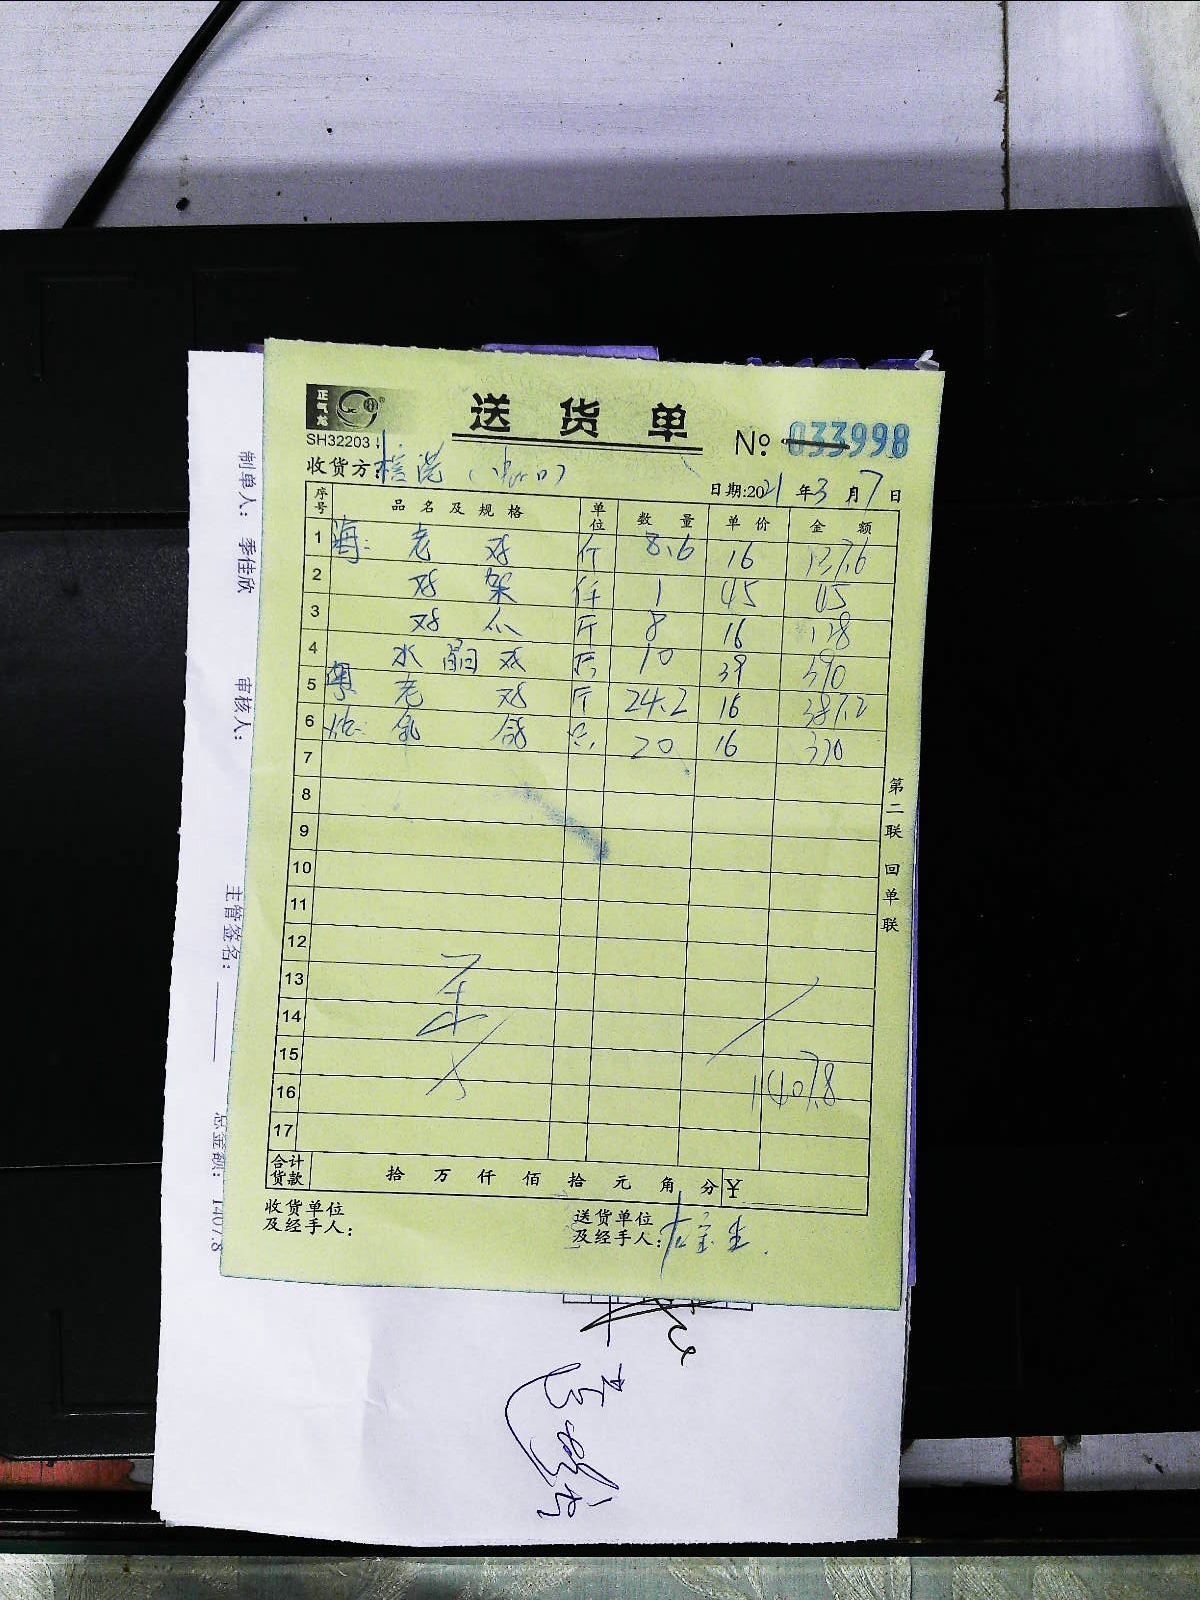 正气龙
SH32203
送货单
№ 033998
收货方:
日期:2021年3月7日
序号 品名及规格 单位 数量 单价 金额
1 海: 老鸡 斤 8.6 16 137.6
2 鸡架 件 1 45 45
3 鸡爪 斤 8 16 128
4 水晶鸡 只 10 39 390
5 粤 老鸡 斤 24.2 16 387.2
6 烧: 乳鸽 只 20 16 320
7
8
9
10
11
12
13
14
15
16 1407.8
17
合计货款 拾 万 仟 佰 拾 元 角 分 ¥
收货单位
及经手人:
送货单位
及经手人:
第二联 回单联
制单人: 季佳欣
审核人:
主管签名:
总金额: 1407.8